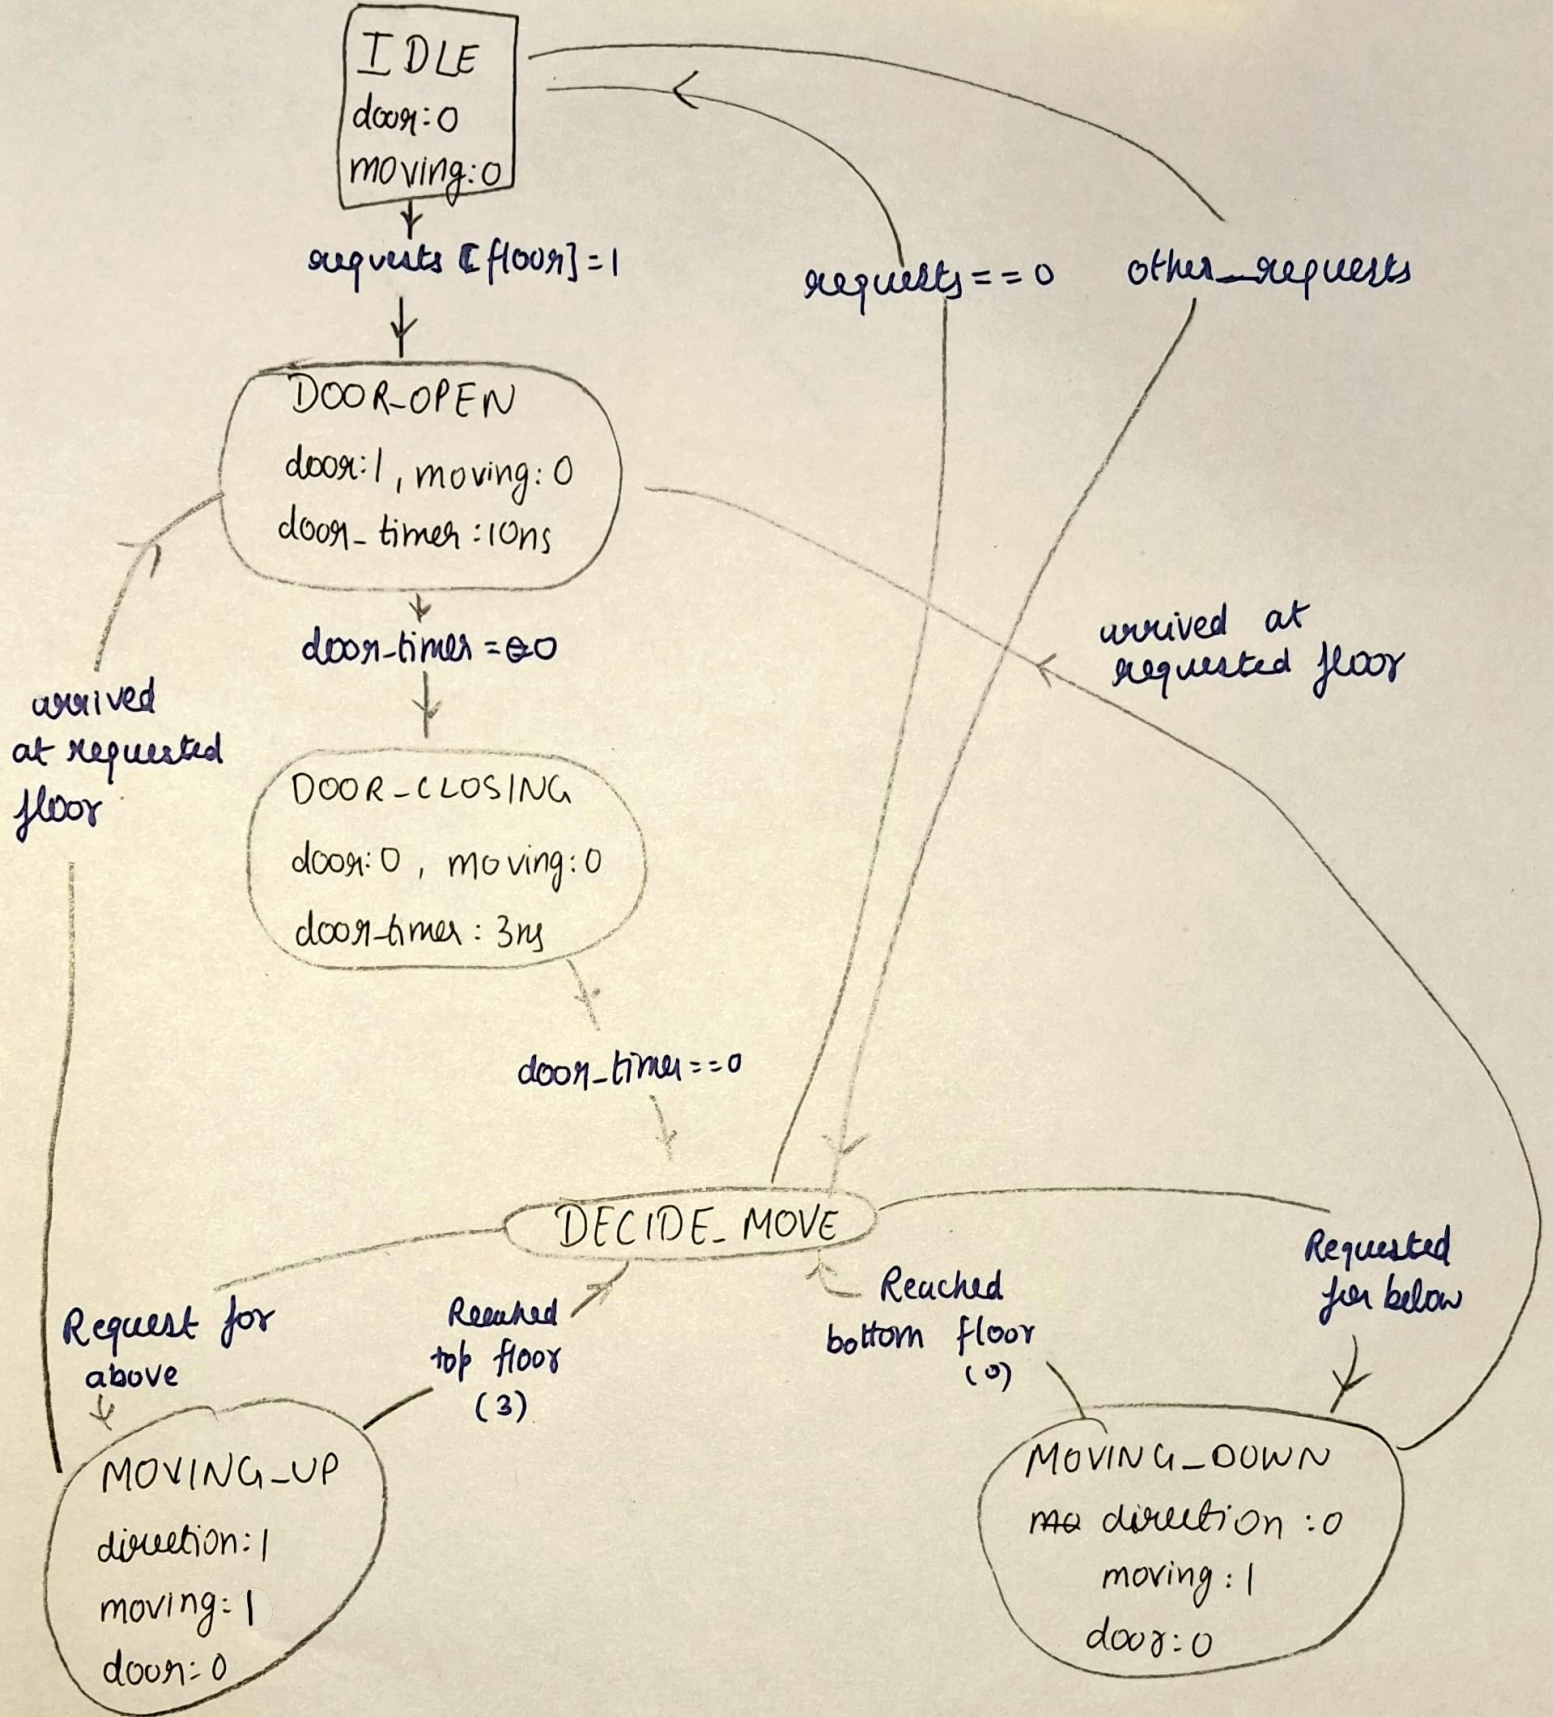 IDLE
door:0
moving:0
requests [floor]=1
requests==0
other_requests
DOOR_OPEN
door:1, moving:0
door_timer:10ns
door_timer ==0
arrived at
requested floor
arrived
at requested
floor
DOOR_CLOSING
door:0, moving:0
door_timer: 3ns
door_timer==0
DECIDE_MOVE
Request for
above
Reached
top floor
(3)
Reached
bottom floor
(0)
Requested
for below
MOVING_UP
direction:1
moving:1
door:0
MOVING_DOWN
direction:0
moving:1
door:0